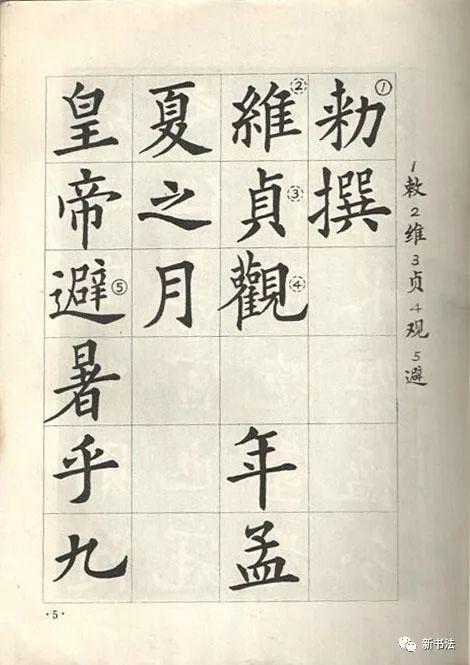 1敕2维3贞4观5避
勑①撰
維②貞③觀④年孟
夏之月
皇帝避⑤暑乎九
·5·
新书法